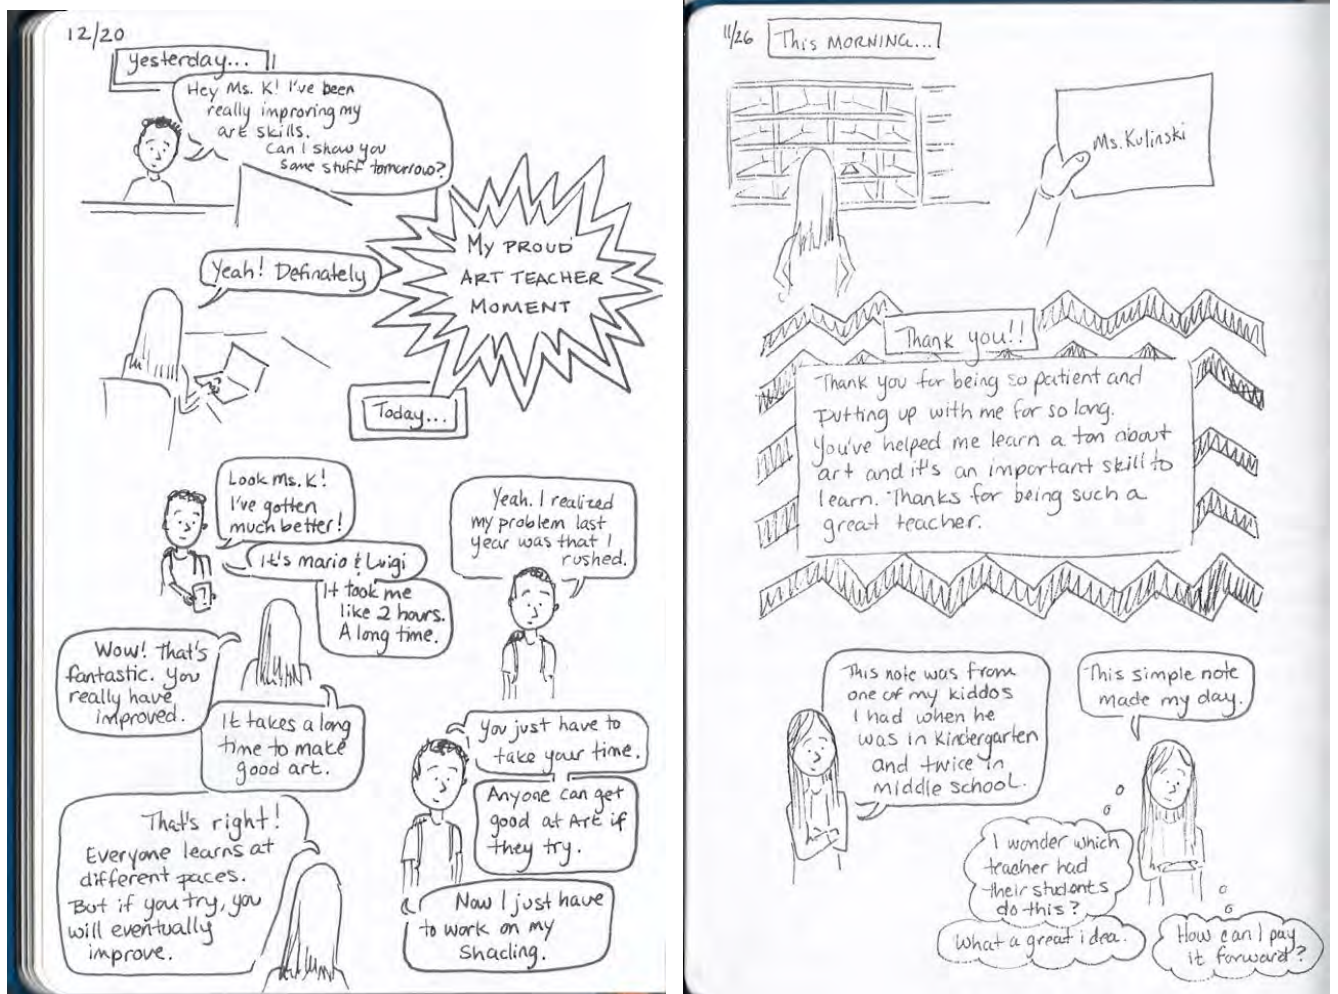 12/20
Yesterday...
Hey Ms. K! I've been
really improving my
art skills.
Can I show you
some stuff tomorrow?
My PROUD
ART TEACHER
MOMENT
Yeah! Definately
Today...
Look Ms. K!
I've gotten
much better!
It's mario & Luigi
It took me
like 2 hours.
A long time.
Yeah. I realized
my problem last
year was that I
rushed.
Wow! That's
fantastic. You
really have
improved.
It takes a long
time to make
good art.
You just have to
take your time.
Anyone can get
good at Art if
they try.
That's right!
Everyone learns at
different paces.
But if you try, you
will eventually
improve.
Now I just have
to work on my
Shading.
11/26
This MORNING...
Ms. Kulinski
Thank you!!
Thank you for being so patient and
putting up with me for so long.
You've helped me learn a ton about
art and it's an important skill to
learn. Thanks for being such a
great teacher.
This note was from
one of my kiddos
I had when he
was in Kindergarten
and twice in
middle school.
This simple note
made my day.
I wonder which
teacher had
their students
do this?
What a great idea.
How can I pay
it forward?